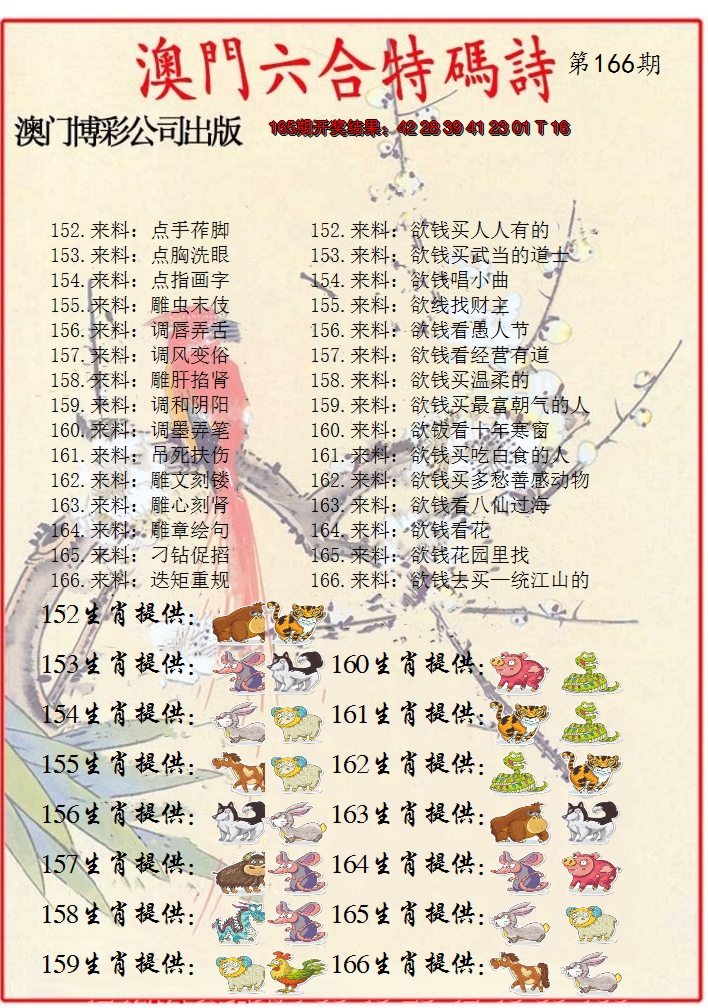 澳門六合特碼詩 第166期
澳门博彩公司出版 165期开奖结果：42 28 39 41 23 01 T 16
152.来料：点手莋脚 152.来料：欲钱买人人有的
153.来料：点胸洗眼 153.来料：欲钱买武当的道士
154.来料：点指画字 154.来料：欲钱唱小曲
155.来料：雕虫末伎 155.来料：欲线找财主
156.来料：调唇弄舌 156.来料：欲钱看愚人节
157.来料：调风变俗 157.来料：欲钱看经营有道
158.来料：雕肝掐肾 158.来料：欲钱买温柔的
159.来料：调和阴阳 159.来料：欲钱买最富朝气的人
160.来料：调墨弄笔 160.来料：欲钱看十年寒窗
161.来料：吊死扶伤 161.来料：欲钱买吃白食的人
162.来料：雕文刻镂 162.来料：欲钱买多愁善感动物
163.来料：雕心刻肾 163.来料：欲钱看八仙过海
164.来料：雕章绘句 164.来料：欲钱看花
165.来料：刁钻促掐 165.来料：欲钱花园里找
166.来料：迭矩重规 166.来料：欲钱去买一统江山的
152生肖提供：
153生肖提供： 160生肖提供：
154生肖提供： 161生肖提供：
155生肖提供： 162生肖提供：
156生肖提供： 163生肖提供：
157生肖提供： 164生肖提供：
158生肖提供： 165生肖提供：
159生肖提供： 166生肖提供：